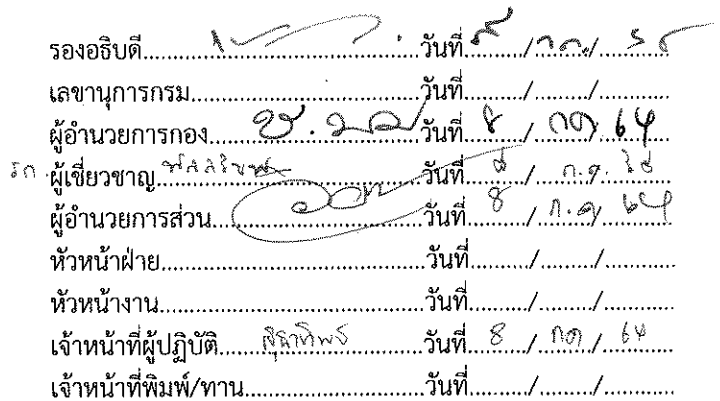 รองอธิบดี..........................วันที่......../........../............
เลขานุการกรม..........................วันที่......../........../............
ผู้อำนวยการกอง..........................วันที่ 8 / กค / 64
รก. ผู้เชี่ยวชาญ..........................วันที่ ๘ / ก.ค. / ๖๔
ผู้อำนวยการส่วน..........................วันที่ 8 / ก.ค / 64
หัวหน้าฝ่าย..........................วันที่......../........../............
หัวหน้างาน..........................วันที่......../........../............
เจ้าหน้าที่ผู้ปฏิบัติ..........................วันที่ 8 / กค / 64
เจ้าหน้าที่พิมพ์/ทาน..........................วันที่......../........../............